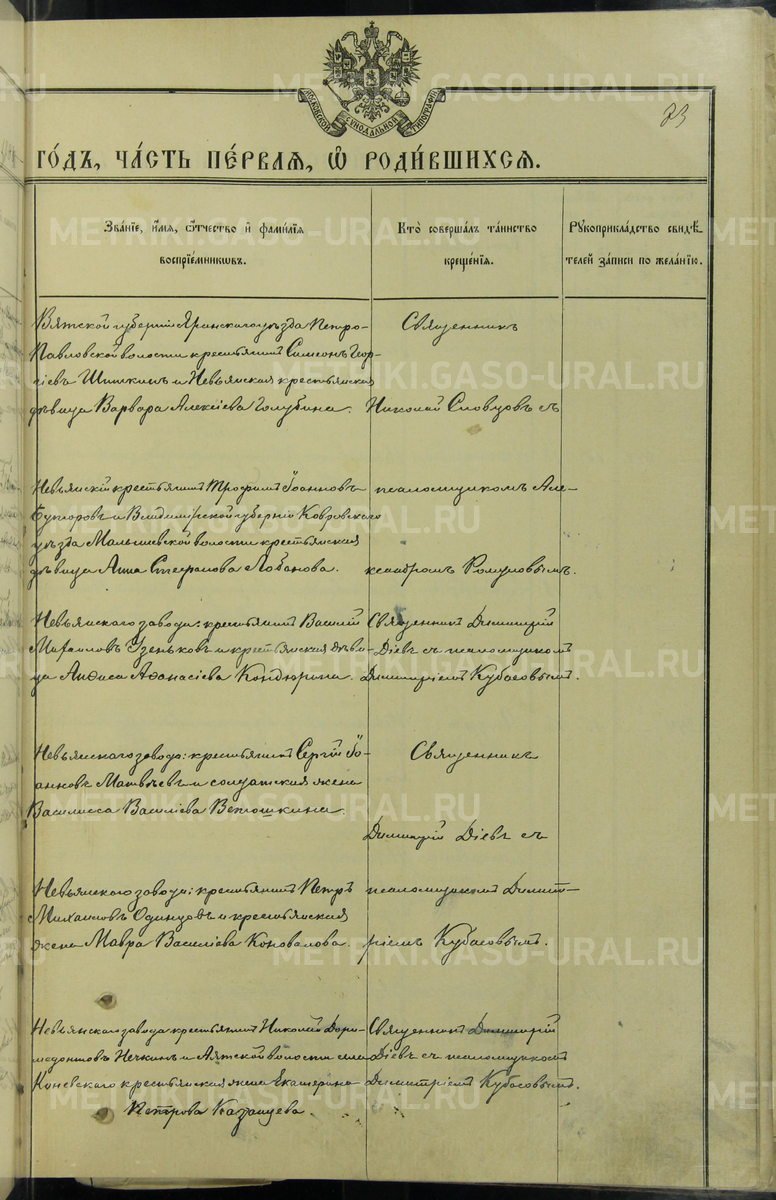 МОСКОВСКОЙ СУНОДАЛЬНОЙ ТИПОГРАФІИ
23
ГО́ДЪ, ЧА́СТЬ ПЕ́РВАѦ, Ѡ҆ РОДИ́ВШИХСѦ.
Зва́нїе, и҆́мѧ, ѻ҆́тчество и҆ фами́лїѧ
воспрїе́мникѡвъ.
Кто̀ соверша́лъ та́инство
креще́нїѧ.
Рꙋкоприкла́дство свидѣ́-
телей за́писи по жела́нїю.
Вятской губерніи Яранскаго уѣзда Петро-
Павловской волости крестьянинъ Симеонъ Геор-
гіевъ Шишкинъ и Невьянская крестьянская
дѣвица Варвара Алексіева Голубина.
Священникъ
Николай Словцовъ съ
Невьянскій крестьянинъ Трофимъ Іоанновъ
и Владимірской губерніи Ковровскаго
уѣзда Малышевской волости крестьянская
дѣвица Анна Стефанова Лобанова.
псаломщикомъ Але-
ксандромъ Ромуловымъ.
Невьянскаго завода: крестьянинъ Василій
Михаиловъ Узеньковъ и крестьянская дѣви-
ца Анѳиса Аѳанасіева Кондюрина.
Священникъ Димитрій
Діевъ съ псаломщикомъ
Димитріемъ Кубасовымъ.
Невьянскаго завода: крестьянинъ Сергій Іо-
анновъ Матвѣевъ и солдатская жена
Василисса Василіева Ветошкина.
Священникъ
Димитрій Діевъ съ
Невьянскаго завода: крестьянинъ Петръ
Михаиловъ Одинцовъ и крестьянская
жена Мавра Василіева Коновалова.
псаломщикомъ Димит-
ріемъ Кубасовымъ.
Невьянскаго завода крестьянинъ Николай Дори-
медонтовъ Нечкинъ и Аятской волости села
Коневскаго крестьянская жена Екатерина
Петрова Казанцева
Священникъ Димитрій
Діевъ съ псаломщикомъ
Димитріемъ Кубасовымъ.
METRIKI.GASO-URAL.RU